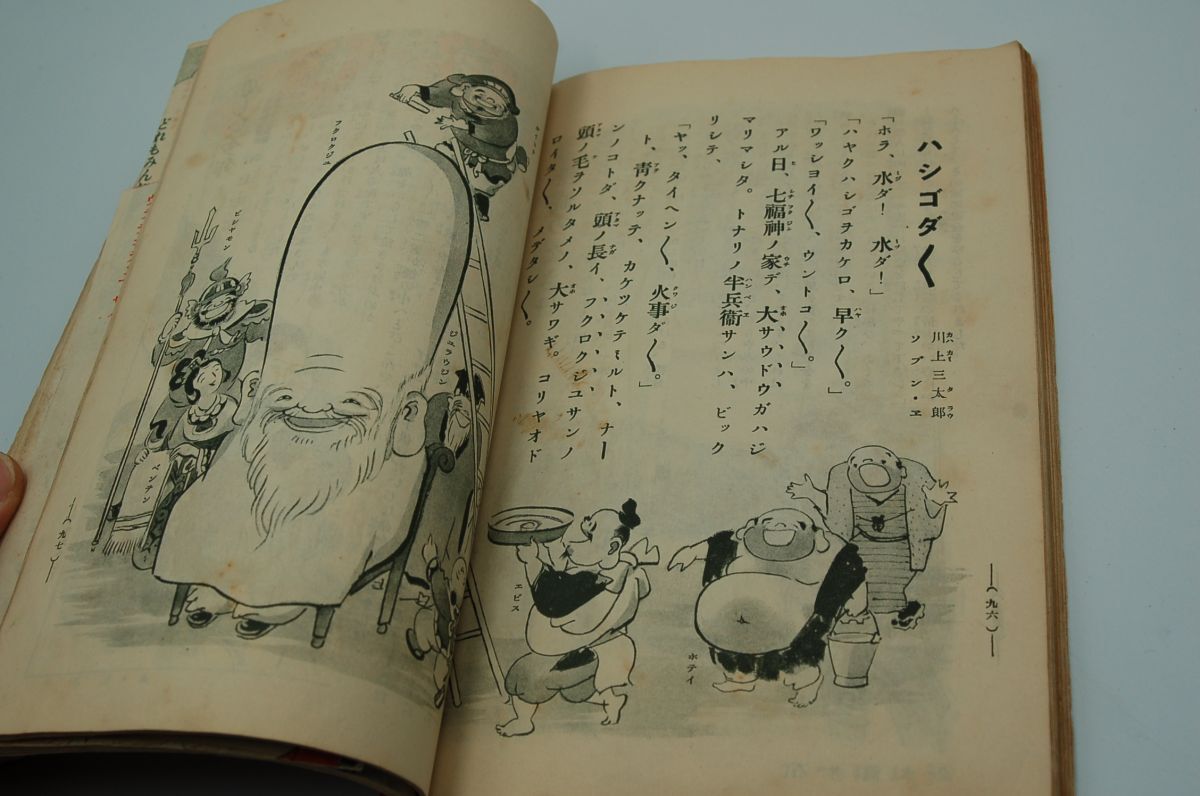 ハシゴダ〱
川上三太郎
ソブン・ヱ
「ホラ、水ダ! 水ダ!」
「ハヤクハシゴヲカケロ、早ク〱。」
「ワッショイ〱、ウントコ〱。」
アル日、七福神ノ家デ、大サウドウガハジ
マリマシタ。トナリノ半兵衞サンハ、ビック
リシテ、
「ヤッ、タイヘン〱、火事ダ〱。」
ト、靑クナッテ、カケツケテミルト、ナー
ンノコトダ、頭ノ長イ、フクロクジユサンノ
頭ノ毛ヲソルタメノ、大サワギ。コリヤオド
ロイタ〱、メデタシ〱。
エビス
ホテイ
―(九六)―
フクロクジユ
ビシヤモン
ジユラウジン
ベンテン
―(九七)―
どれもみん